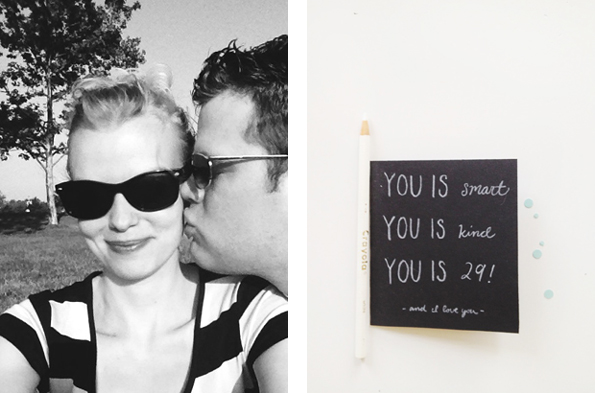 YOU IS smart
YOU IS kind
YOU IS 29!
- and i love you -
Crayola